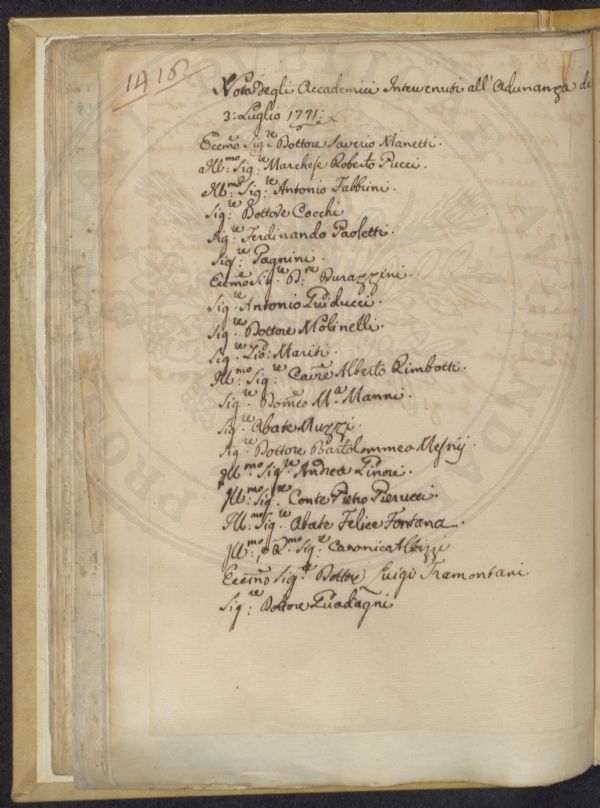 14 18.
Nota degli Accademici Intervenuti all'Adunanza de
3: Luglio 1771:
Eccmo Sig.re Dottore Saverio Manetti.
Ill:mo Sig:re Marchese Roberto Pucci.
Ill:mo Sig:re Antonio Fabbrini.
Sig:re Dottore Cocchi
Sig:re Ferdinando Paoletti.
Sig:re Pagnini.
Eccmo Sig:re D:re Durazzini.
Sig:re Antonio Guiducci.
Sig:re Dottore Molinelli.
Sig:re Gio: Mariti.
Ill:mo Sig:re Cavre Alberto Rimbotti.
Sig:re Domco Ma Manni.
Sig:re Abate Muzzi.
Sig:re Dottore Bartolommeo Mesnij.
Ill:mo Sig:re Andrea Ginori.
Ill:mo Sig:re Conte Pietro Pierucci.
Ill:mo Sig:re Abate Felice Fontana.
Ill:mo, e R:mo Sig:re Canonico Albizzi
Eccmo Sig:re Dottore Luigi Tramontani
Sig:re Dottore Guadagni